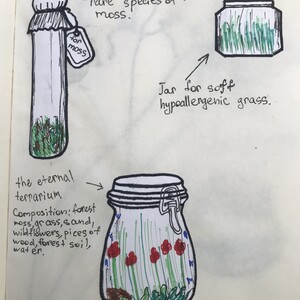 rare species of
moss.
for
moss
Jar for soft
hypoallergenic grass.
the eternal
terrarium
Composition: forest
moss, grass, sand,
wildflowers, pices of
wood, forest soil,
water.